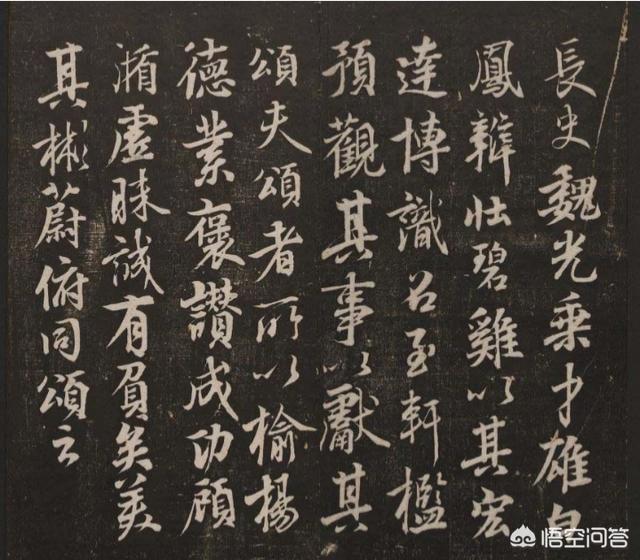 長史魏光乘才雄白
鳳辯壮碧雞以其宏
達博識召至軒檻
預觀其事以獻其
頌夫頌者所以榆楊
德業褒讚成功顧
循虛昧誠有負矣美
其彬蔚俯同頌云
悟空问答